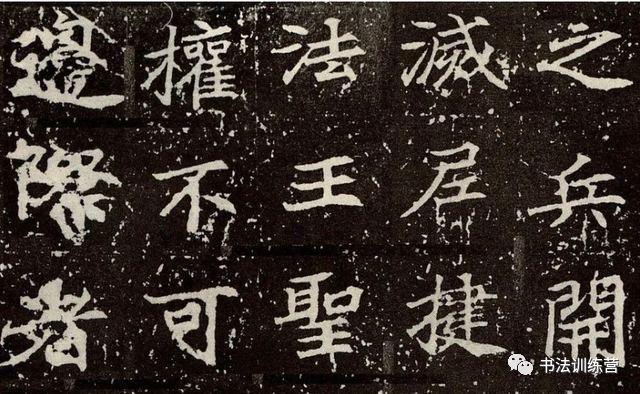 之兵開
滅居捷
法王聖
權不可
邊際者
书法训练营